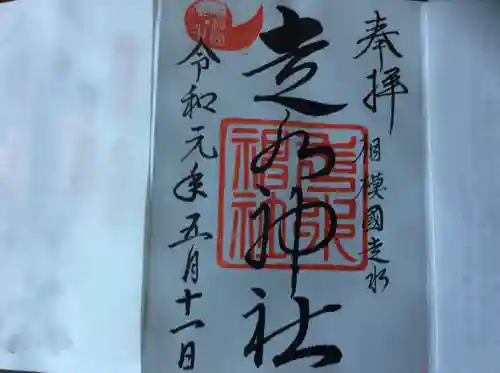 奉拝
相模國走水
走水神社
走水神社
令和元年五月十一日